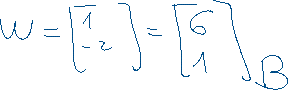 W = [1 -2] = [6 1]B